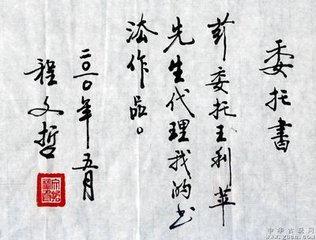 委托書
兹委托王利華
先生代理我的书
法作品。
二〇一〇年五月
程文哲
中华古玩网